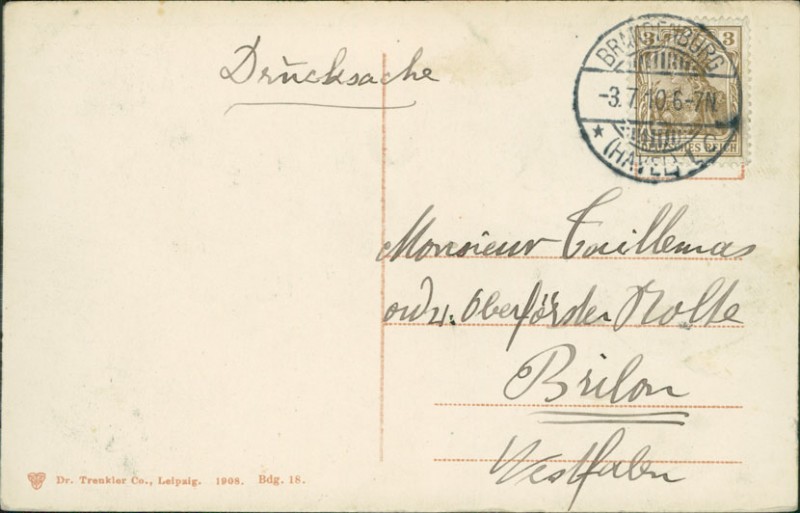 Drucksache
3 3
BRANDENBURG
-3.7.10.6-7N.
* (HAVEL)
DEUTSCHES REICH
Monsieur
Oberförster Nolte
Brilon
Westfalen
Dr. Trenkler Co., Leipzig. 1908. Bdg. 18.